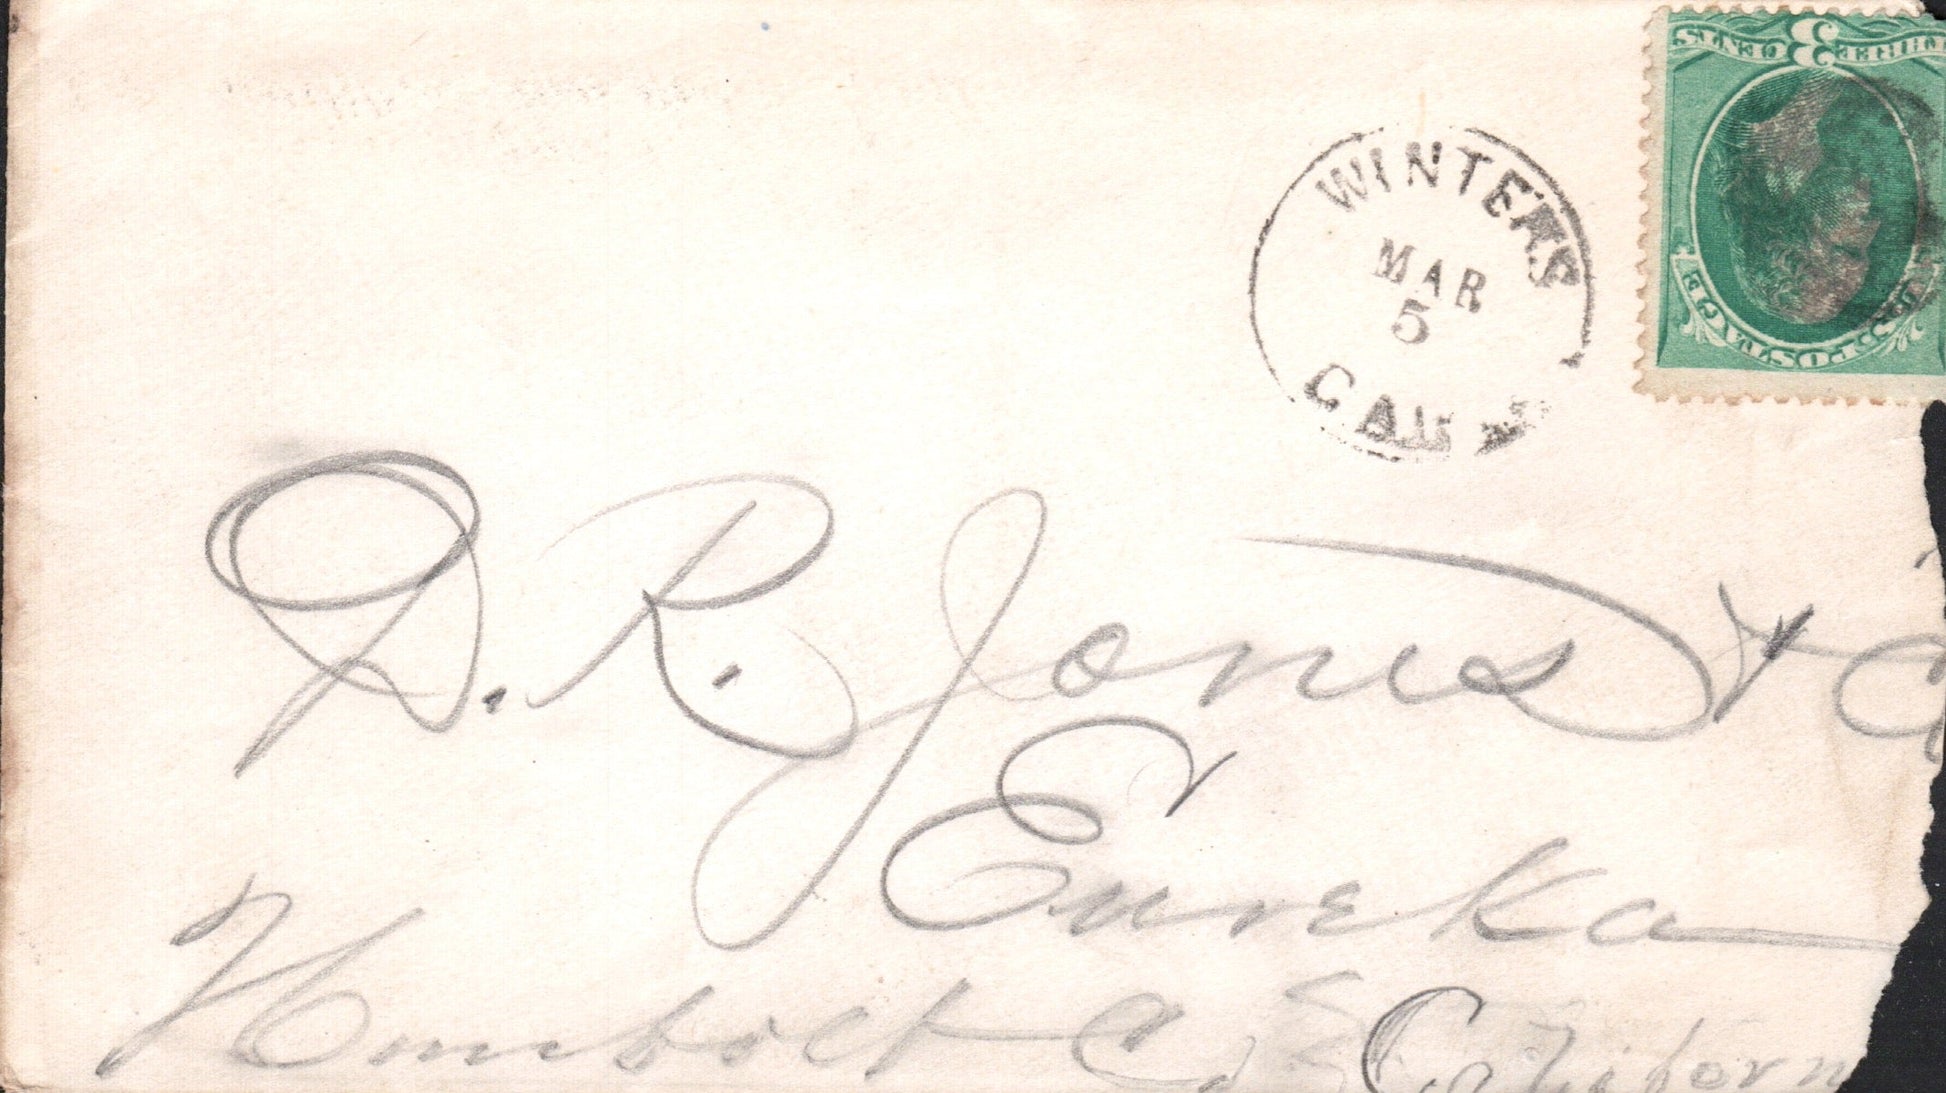 3
THREE CENTS
U.S. POSTAGE
WINTERS
MAR
5
CAL
D. R. Jones & C
Eureka
Humbolt Co Californ